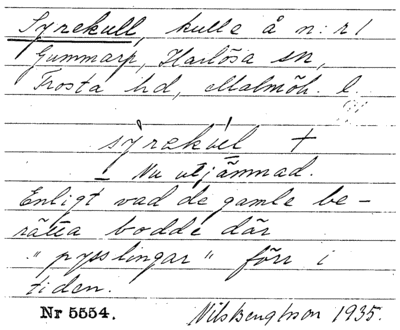 Syrekull, kulle å n:r 1
Gummarp, Harlösa sn,
Frosta hd, Malmöh. l.
syrekúel +
– Nu utjämnad.
Enligt vad de gamle be-
rätta bodde där
"pysslingar" förr i
tiden.
Nr 5554. Nils Bengtsson 1935.